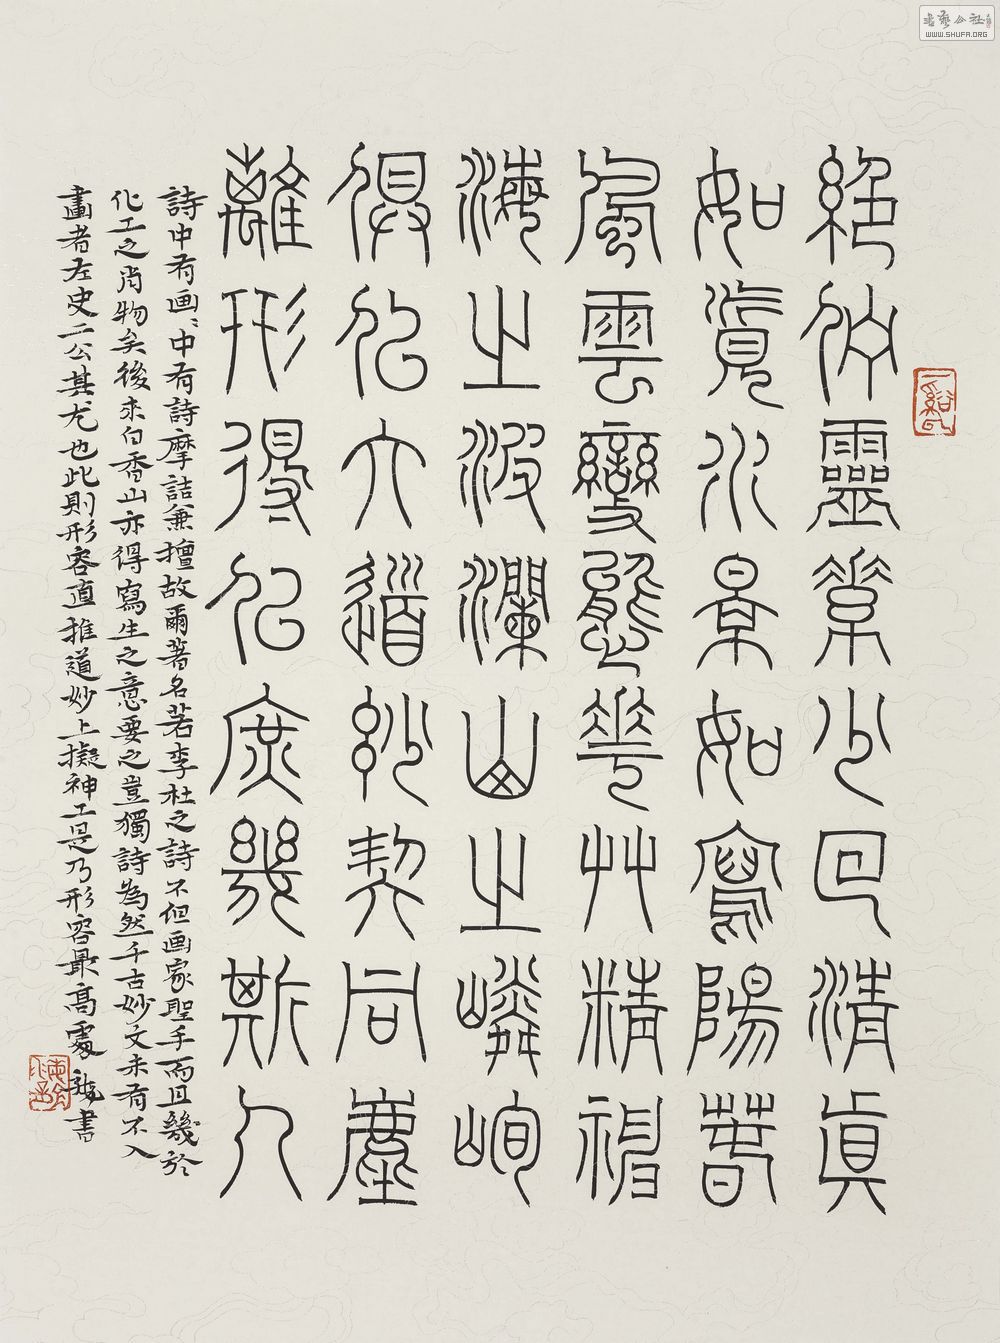 絕佇靈素少回清真
如覓水景如寫陽春
風雲變態花艸精神
海之波瀾山之嶙峋
俱㠯大道妙契同塵
離形得㠯庶幾斯人
詩中有画〻中有詩摩詰兼擅故爾著名若李杜之詩不但画家聖手而且幾於
化工之肖物矣後來白香山亦得寫生之意要之豈獨詩為然千古妙文未有不入
畫者左史二公其尤也此則形容直推道妙上擬神工是乃形容最高處 書
書藝公社
WWW.SHUFA.ORG